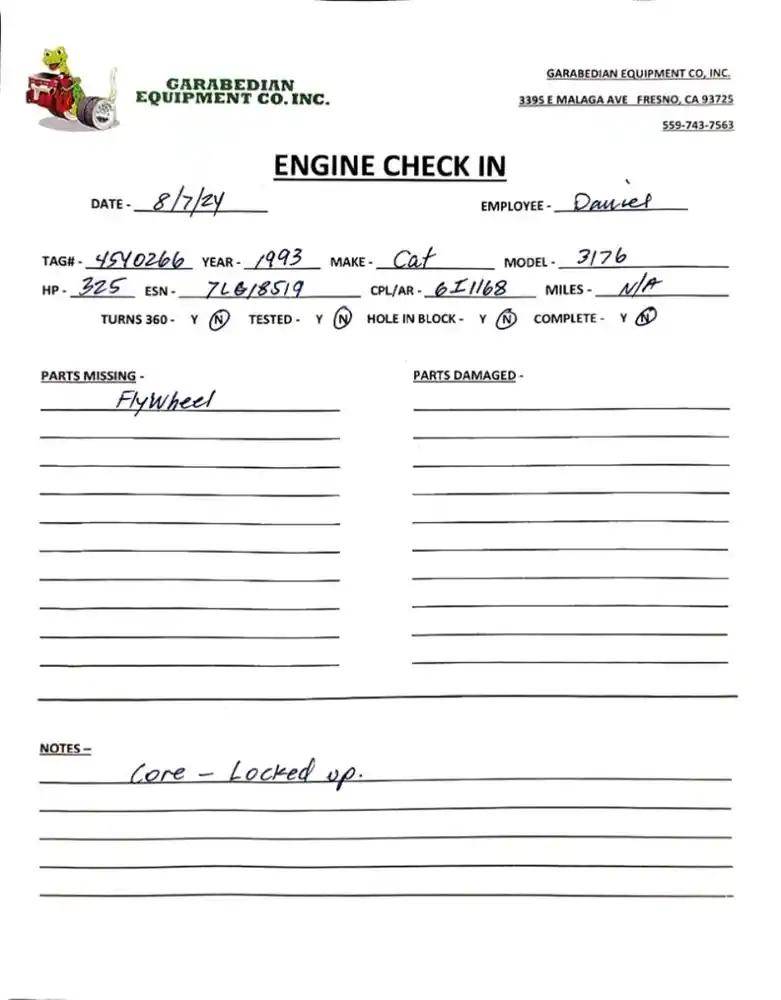 GARABEDIAN
EQUIPMENT CO. INC.
GARABEDIAN EQUIPMENT CO, INC.
3395 E MALAGA AVE FRESNO, CA 93725
559-743-7563
ENGINE CHECK IN
DATE - 8/7/24 EMPLOYEE - Daniel
TAG# - 45Y0266 YEAR - 1993 MAKE - Cat MODEL - 3176
HP - 325 ESN - 7LG18519 CPL/AR - 6I1168 MILES - N/A
TURNS 360 - Y N TESTED - Y N HOLE IN BLOCK - Y N COMPLETE - Y N
PARTS MISSING - PARTS DAMAGED -
FlyWheel
NOTES –
Core - Locked up.